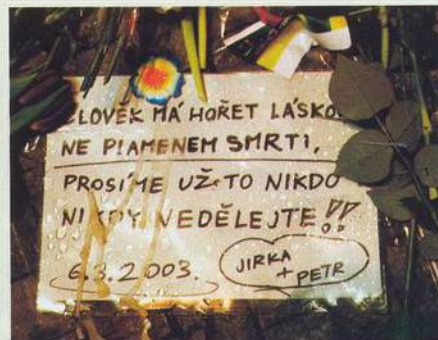 ČLOVĚK MÁ HOŘET LÁSKO
NE PLAMENEM SMRTI,
PROSÍME UŽ TO NIKDO
NIKDY NEDĚLEJTE!!
6.3.2003.
JIRKA
+ PETR